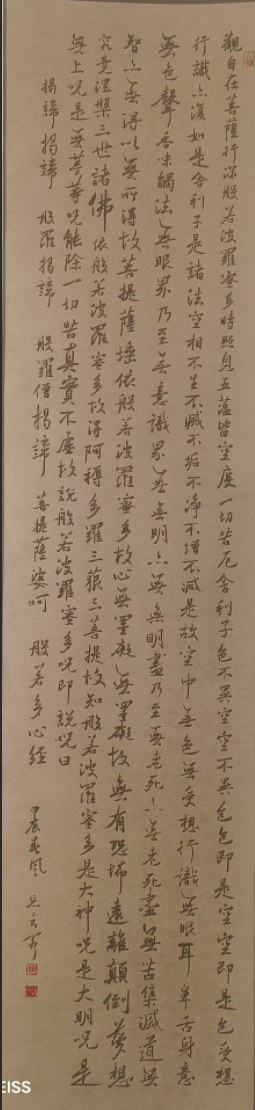 觀自在菩薩行深般若波羅蜜多時照見五蘊皆空度一切苦厄舍利子色不異空空不異色色即是空空即是色受想
行識亦復如是舍利子是諸法空相不生不滅不垢不淨不增不減是故空中無色無受想行識無眼耳鼻舌身意
無色聲香味觸法無眼界乃至無意識界無無明亦無無明盡乃至無老死亦無老死盡無苦集滅道無
智亦無得以無所得故菩提薩埵依般若波羅蜜多故心無罣礙無罣礙故無有恐怖遠離顛倒夢想
究竟涅槃三世諸佛依般若波羅蜜多故得阿耨多羅三藐三菩提故知般若波羅蜜多是大神咒是大明咒是
無上咒是無等等咒能除一切苦真實不虛故說般若波羅蜜多咒即說咒曰
揭諦 揭諦 般羅揭諦 般羅僧揭諦 菩提薩婆呵 般若多心經
甲辰春風
EISS